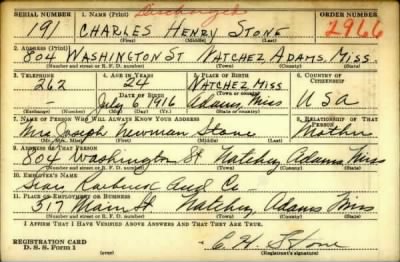 SERIAL NUMBER 1. NAME (Print) Discharged ORDER NUMBER
191 CHARLES HENRY STONE 2966
2. ADDRESS (Print)
804 WASHINGTON ST NATCHEZ ADAMS, MISS.
(Number and street or R. F. D. number) (Town) (County) (State)
3. TELEPHONE 4. AGE IN YEARS 5. PLACE OF BIRTH 6. COUNTRY OF CITIZENSHIP
262 24 NATCHEZ MISS
DATE OF BIRTH (Town or county)
July 6, 1916 Adams, Miss USA
(Exchange) (Number) (Mo.) (Day) (Yr.) (State or country)
7. NAME OF PERSON WHO WILL ALWAYS KNOW YOUR ADDRESS 8. RELATIONSHIP OF THAT PERSON
Mrs Joseph Newman Stone Mother
9. ADDRESS OF THAT PERSON
804 Washington St Natchez Adams Miss
(Number and street or R. F. D. number) (Town) (County) (State)
10. EMPLOYER'S NAME
Sears Roebuck And Co
11. PLACE OF EMPLOYMENT OR BUSINESS
317 Main St Natchez Adams Miss
(Number and street or R. F. D. number) (Town) (County) (State)
I AFFIRM THAT I HAVE VERIFIED ABOVE ANSWERS AND THAT THEY ARE TRUE.
REGISTRATION CARD
D. S. S. Form 1 C. H. Stone
(Registrant's signature)